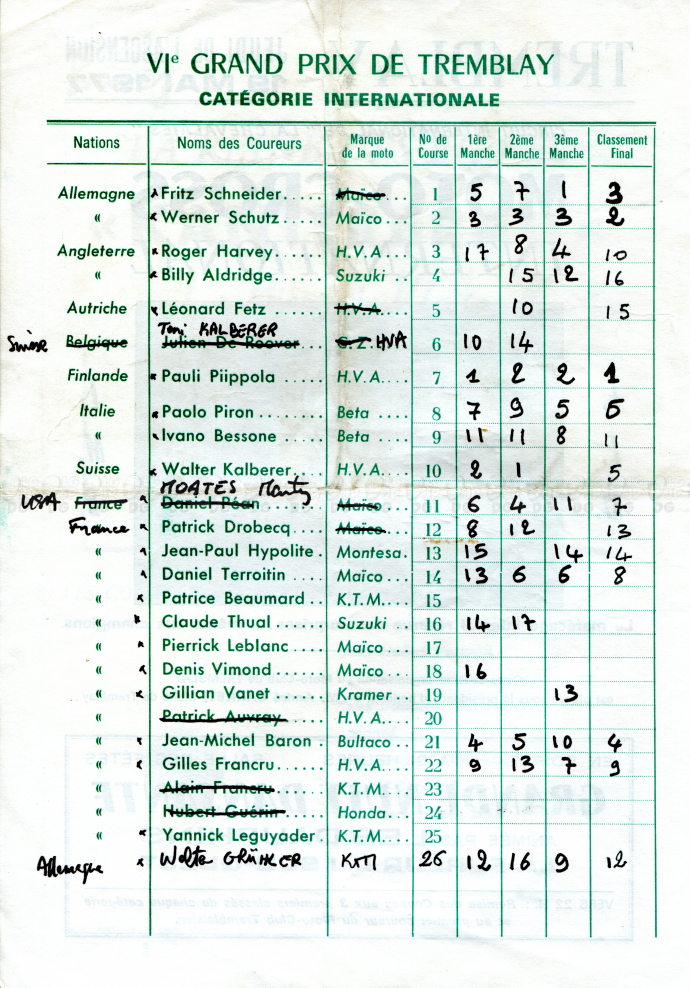 VIe GRAND PRIX DE TREMBLAY
CATÉGORIE INTERNATIONALE
Nations Noms des Coureurs Marque de la moto No de Course 1ère Manche 2ème Manche 3ème Manche Classement Final
Allemagne Fritz Schneider..... Maïco... 1 5 7 1 3
« Werner Schutz ..... Maïco... 2 3 3 3 2
Angleterre Roger Harvey...... H.V.A.... 3 17 8 4 10
« Billy Aldridge....... Suzuki... 4 15 12 16
Autriche Léonard Fetz ...... H.V.A.... 5 10 15
Toni KALBERER
Suisse Belgique Julien De Roover... C.Z. HVA 6 10 14
Finlande Pauli Piippola ..... H.V.A.... 7 1 2 2 1
Italie Paolo Piron ........ Beta .... 8 7 9 5 6
« Ivano Bessone ..... Beta .... 9 11 11 8 11
Suisse Walter Kalberer.... H.V.A.... 10 2 1 5
MOATES Marty
USA France Daniel Péan Maïco... 11 6 4 11 7
France Patrick Drobecq ... Maïco... 12 8 12 13
« Jean-Paul Hypolite . Montesa. 13 15 14 14
« Daniel Terroitin .... Maïco... 14 13 6 6 8
« Patrice Beaumard .. K.T.M.... 15
« Claude Thual...... Suzuki... 16 14 17
« Pierrick Leblanc.... Maïco... 17
« Denis Vimond ..... Maïco... 18 16
« Gillian Vanet ...... Kramer.. 19 13
« Patrick Auvray..... H.V.A.... 20
« Jean-Michel Baron . Bultaco.. 21 4 5 10 4
« Gilles Francru...... H.V.A.... 22 9 13 7 9
« Alain Francru...... K.T.M.... 23
« Hubert Guérin..... Honda... 24
« Yannick Leguyader. K.T.M.... 25
Allemagne Walter GRÜHLER KTM 26 12 16 9 12